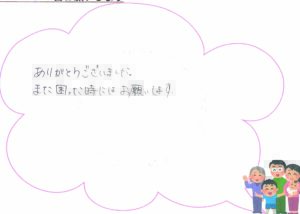 ありがとうございました。
また困った時にはお願いします!